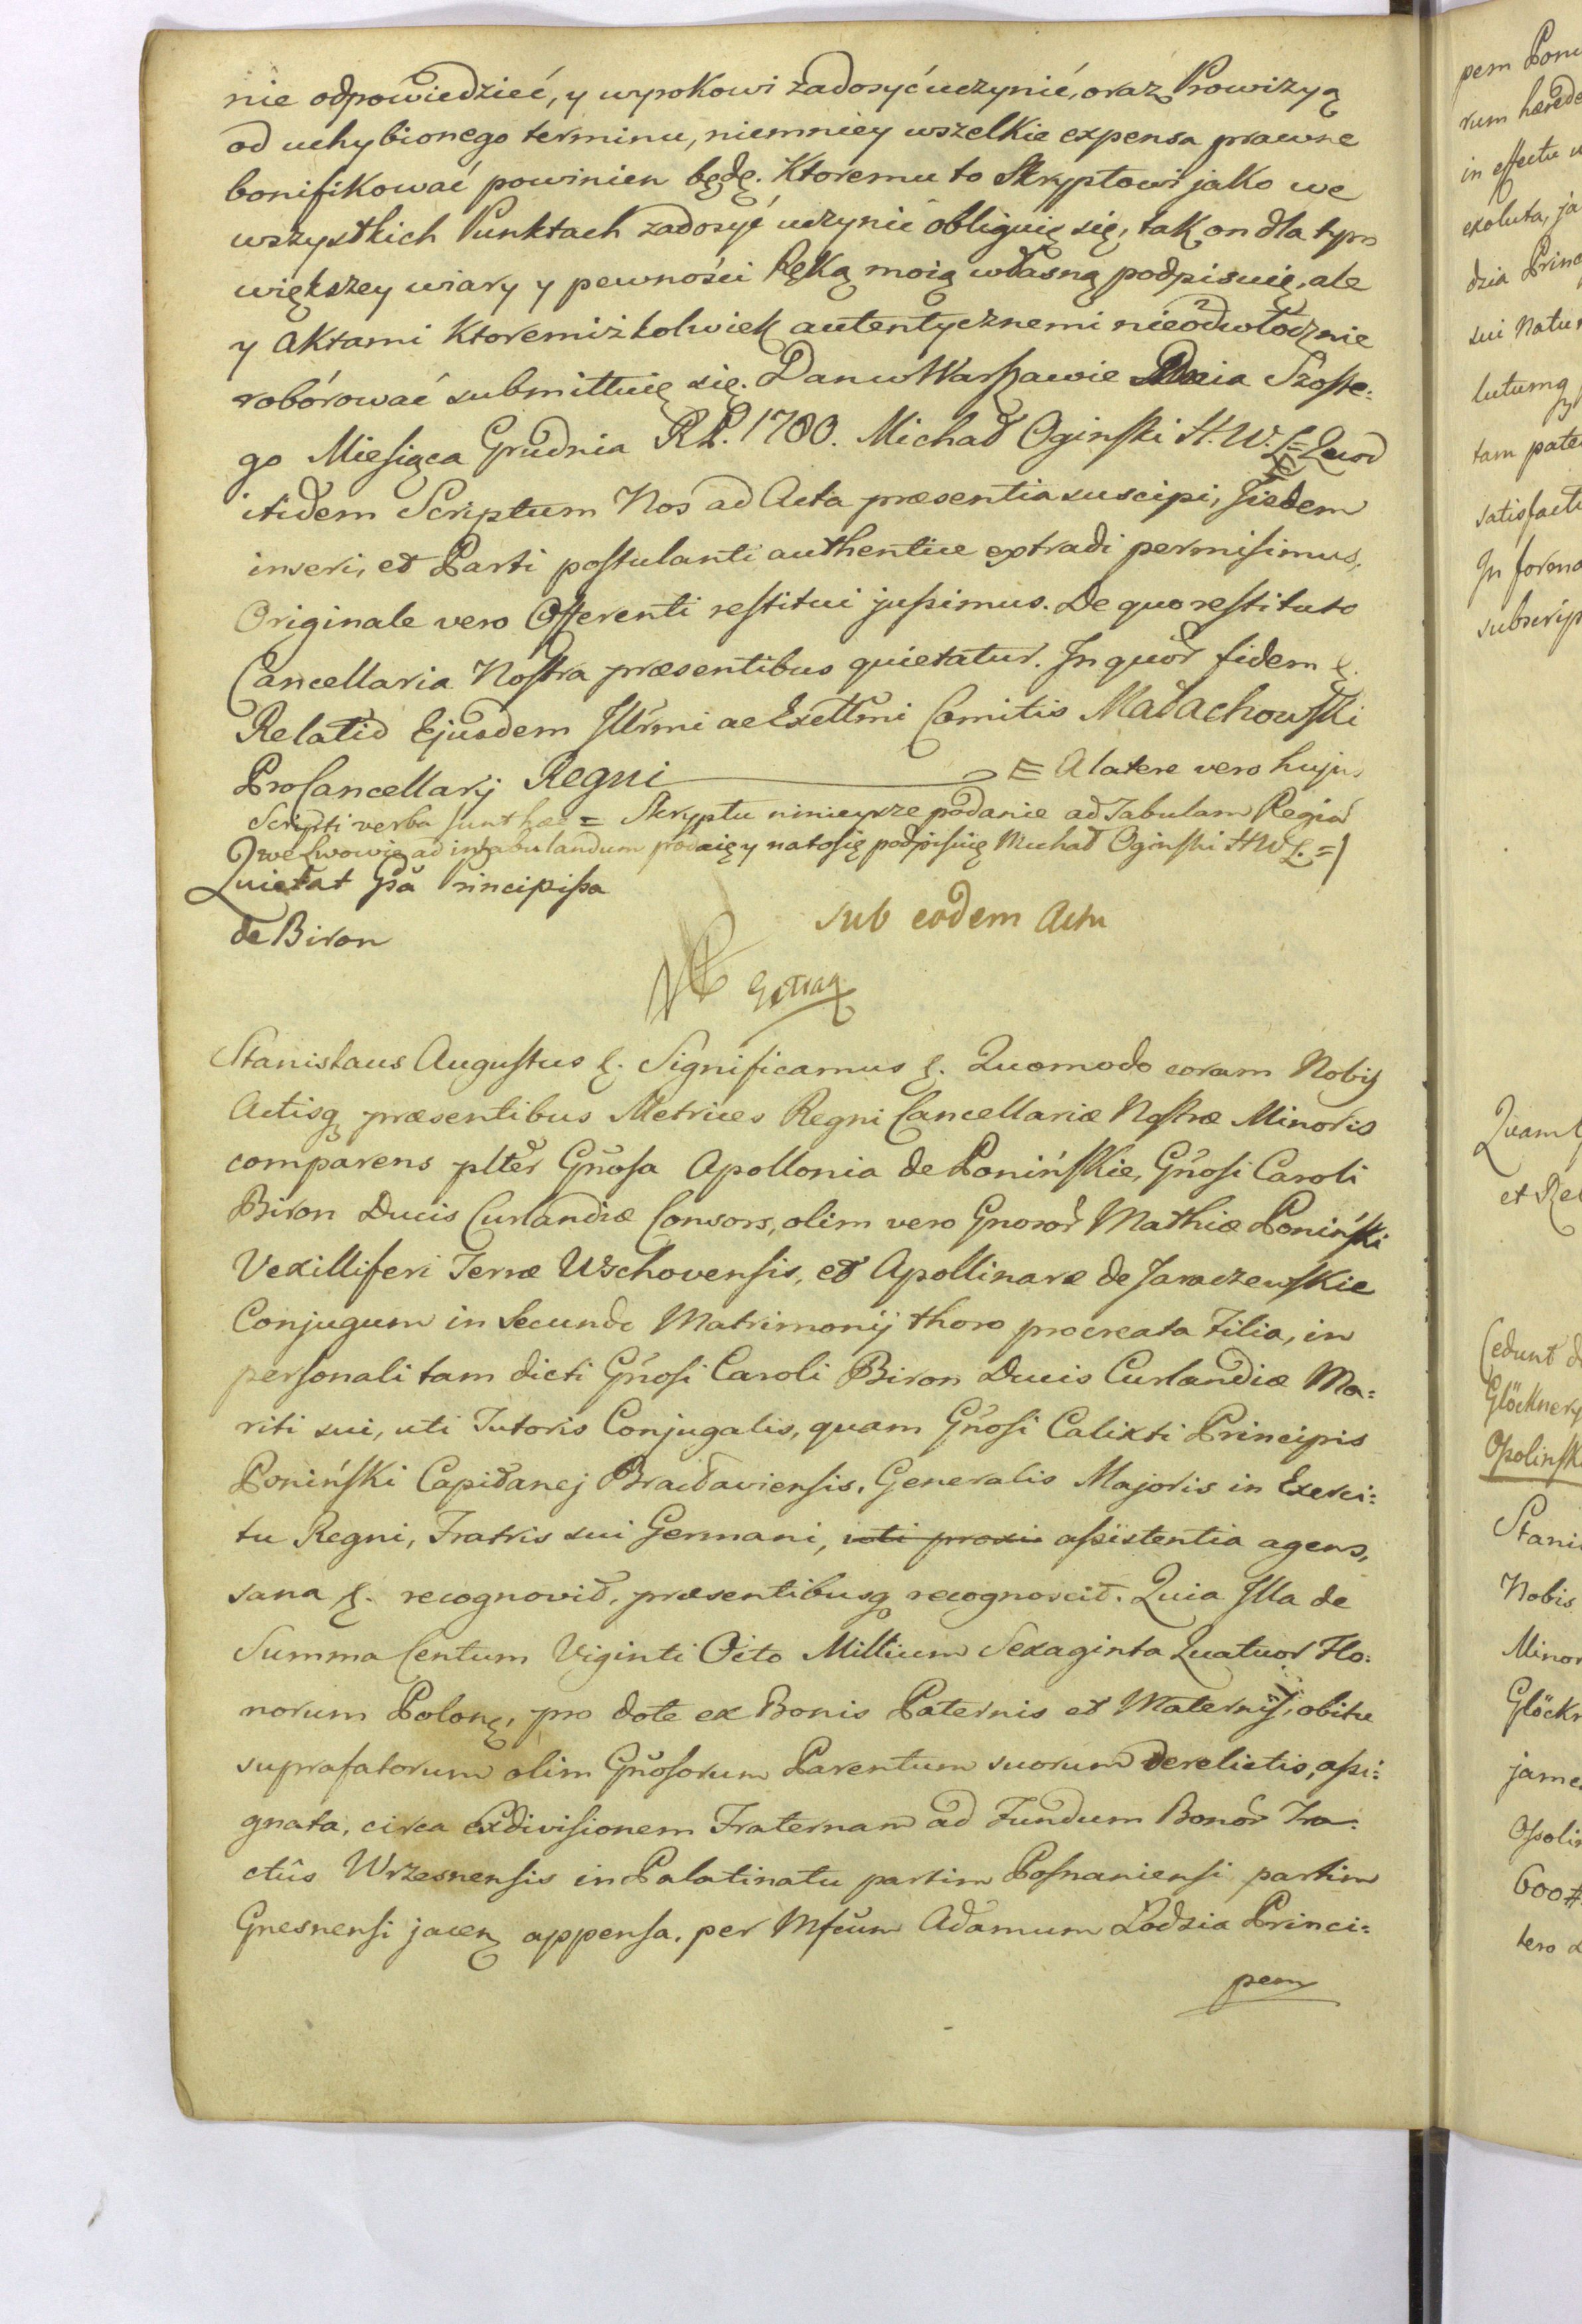 nie odpowiedzieć, y wyrokowi zadosyć uczynić, oraz Prowizyą
od uchybionego terminu, niemniey wszelkie expensa prawne
bonifikować powinien będę. Ktoremu to Skryptowi jako we
wszystkich Punktach zadosyć uczynić obliguię się, tak on dla tym
większey wiary y pewności Ręką moią własną podpisuię, ale
y Aktami Ktoremiżkolwiek autentycznemi nieodwłocznie
roborować submittuię się. Dan w Warszawie Dnia Szoste:
go Miesiąca Grudnia R.P. 1780. Michał Oginski H.W.L = Quod
itidem Scriptum Nos ad Acta præsentia suscipi, Jisdem
inseri, et Parti postulanti authentice extradi permisimus,
Originale vero Offerenti restitui jussimus. De quo restituto
Cancellaria Nostra præsentibus quietatur. In quor fidem &.
Relatio Ejusdem Illrmi ac Excllmi Comitis Małachowski
ProCancellarij Regni = A latere vero hujus
Scripti verba sunt hæc = Skryptu ninieysze podanie ad Tabulam Regiam
we Lwowie ad intabulandum podaię y na to się podpisuię Michał Oginski HWL. =
Quietat Gsa Principissa
de Biron
sub eodem Actu
Stanislaus Augustus &. Significamus &. Quomodo coram Nobis
Actisq præsentibus Metrices Regni Cancellariæ Nostræ Minoris
comparens plter Gnosa Apollonia de Ponińskie, Gnosi Caroli
Biron Ducis Curlandiæ Consors, olim vero Gnosor Mathiæ Poniński
Vexilliferi Terræ Wschovensis, et Apollinaræ de Jaraczewskie
Conjugum in Secundo Matrimonij thoro procreata Filia, in
personali tam dicti Gnosi Caroli Biron Ducis Curlandiæ Ma=
riti sui, uti Tutoris Conjugalis, quam Gnosi Calixti Principis
Poniński Capitanej Bracłaviensis, Generalis Majoris in Exerci=
tu Regni, Fratris sui Germani, uti proxi assistentia agens,
sana &. recognovit, præsentibusq recognoscit. Quia Illa de
Summa Centum Viginti Octo Millium Sexaginta Quatuor Flo=
norum Polonę, pro dote ex Bonis Paternis et Maternis, obitu
suprafatorum olim Gnosorum Parentum suorum derelictis, assi=
gnata, circa exdivisionem Fraternam ad Fundum Bonor Tra=
ctûs Wrzesnensis in Palatinatu partim Posnaniensi partim
Gnesnensi jacenę appensa, per Mfcum Adamum Łodzia Princi=
pem